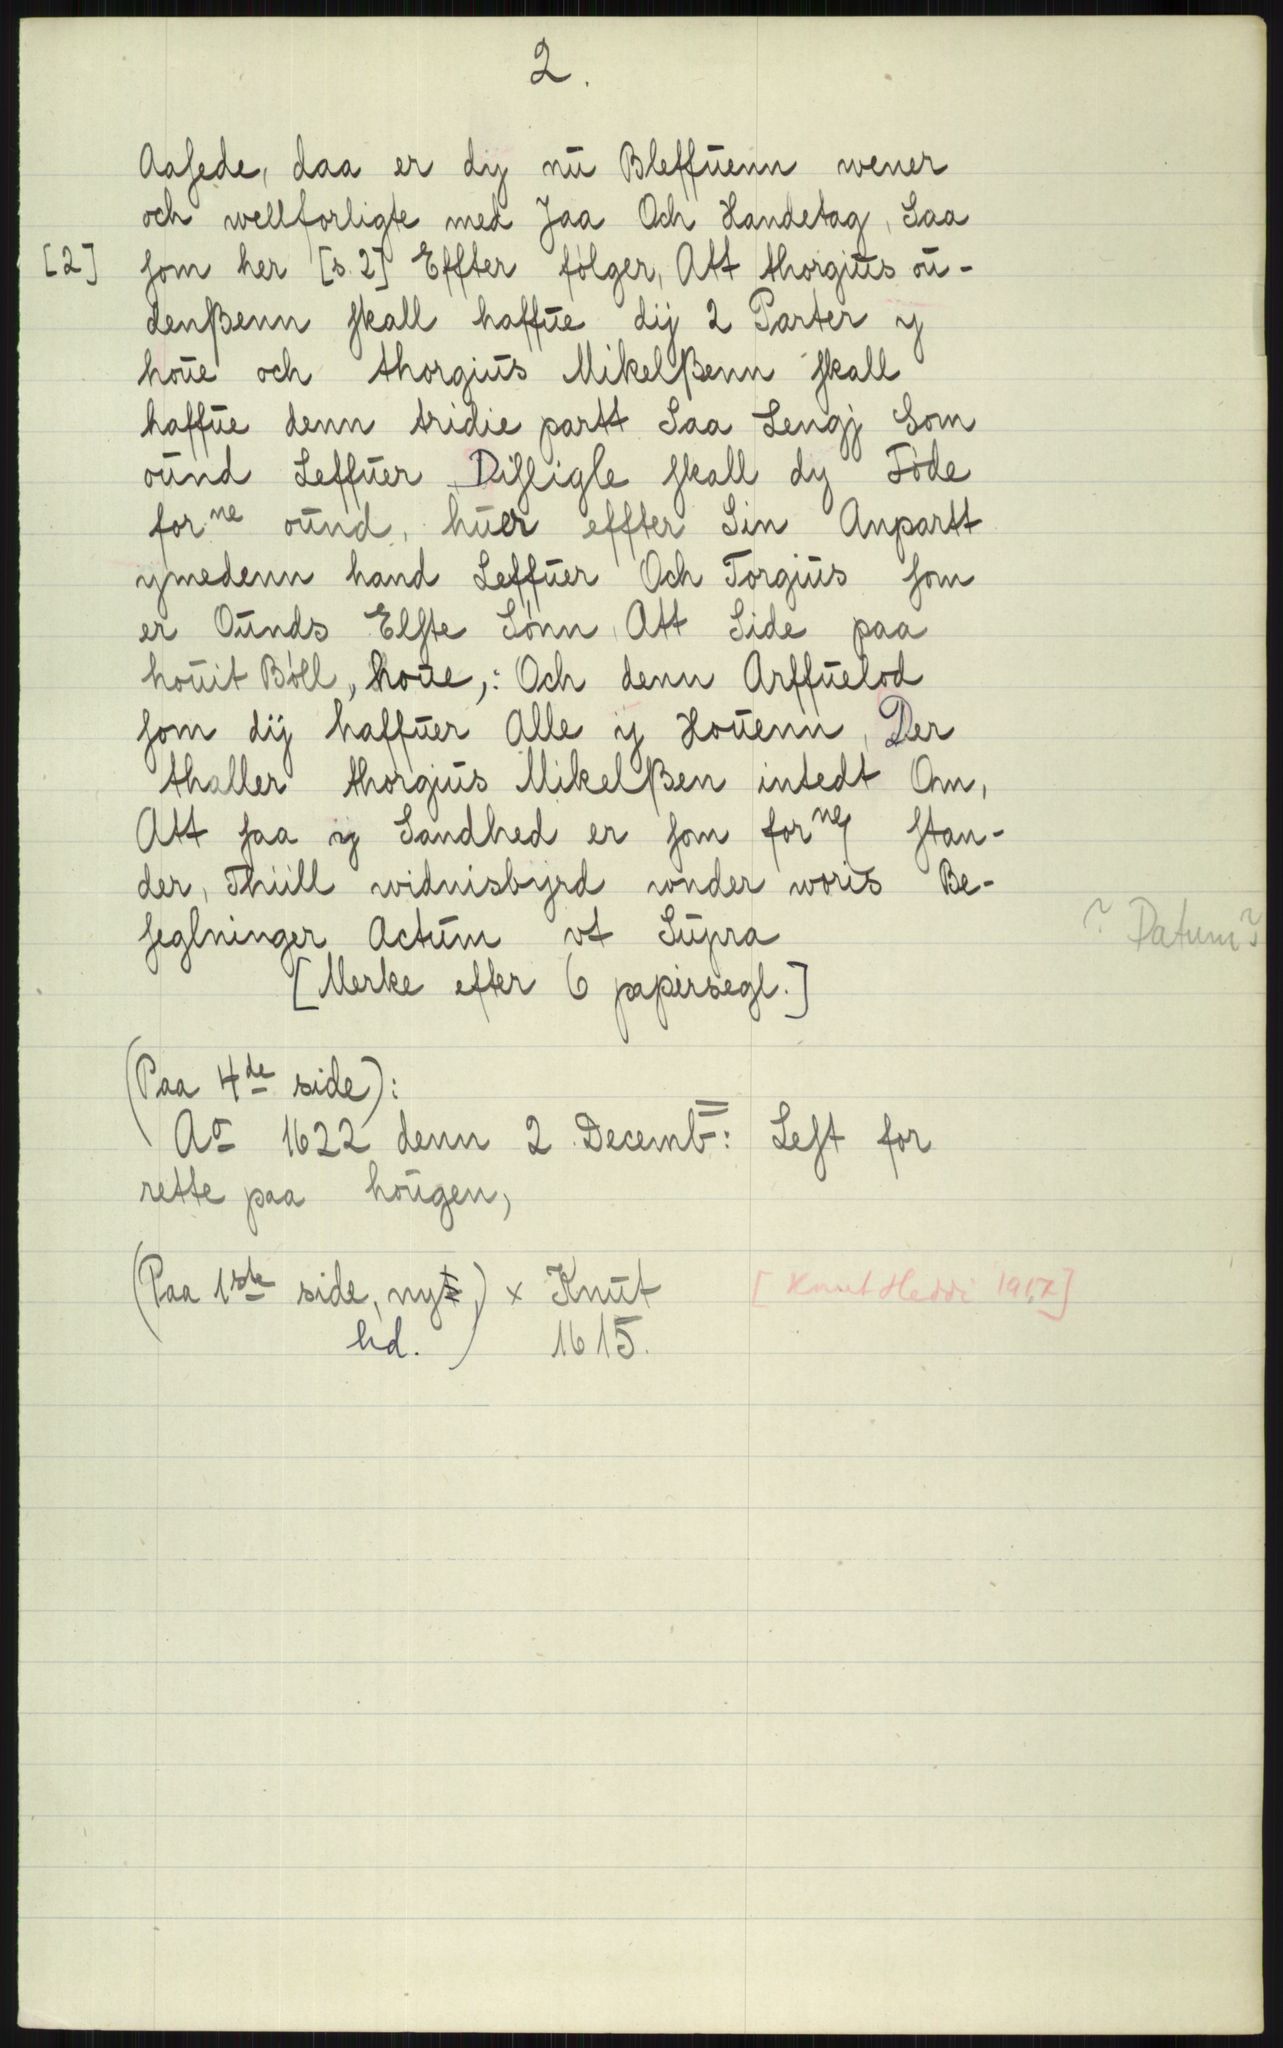 2.
Aasede, daa er dy nu Bleffuenn wener
och wellforligte med Jaa Och Handetag, Saa
[2] som her [s. 2] Effter følger, Att thorgius ou-
denßenn skall haffue dij 2 Parter y
houe och thorgius Mikelßenn skall
haffue denn tridie partt Saa Lengj Som
ound Leffuer Disligle skall dy Føde
for ne ound, huer effter Sin Anpartt
ymedenn hand Leffuer Och Torgius som
er Ounds Elste Sønn, Att Side paa
houit Bøll, houe,: Och denn Arffuelod
som dij haffuer Alle y Houenn, Der
thaller thorgius Mikelßen intedt Om,
Att saa y Sandhed er som for ne stan-
der, Thiill widnisbyrd wnder woris Be-
seglninger Actum vt Supra
? Datum ?
[Merke efter 6 papirsegl.]
(Paa 4de side):
Ao 1622 denn 2 Decemb: Lest for
rette paa hougen,
(Paa 1ste side, nyt, hd.) x Knut 1615.
[Knut Heddi 1917]